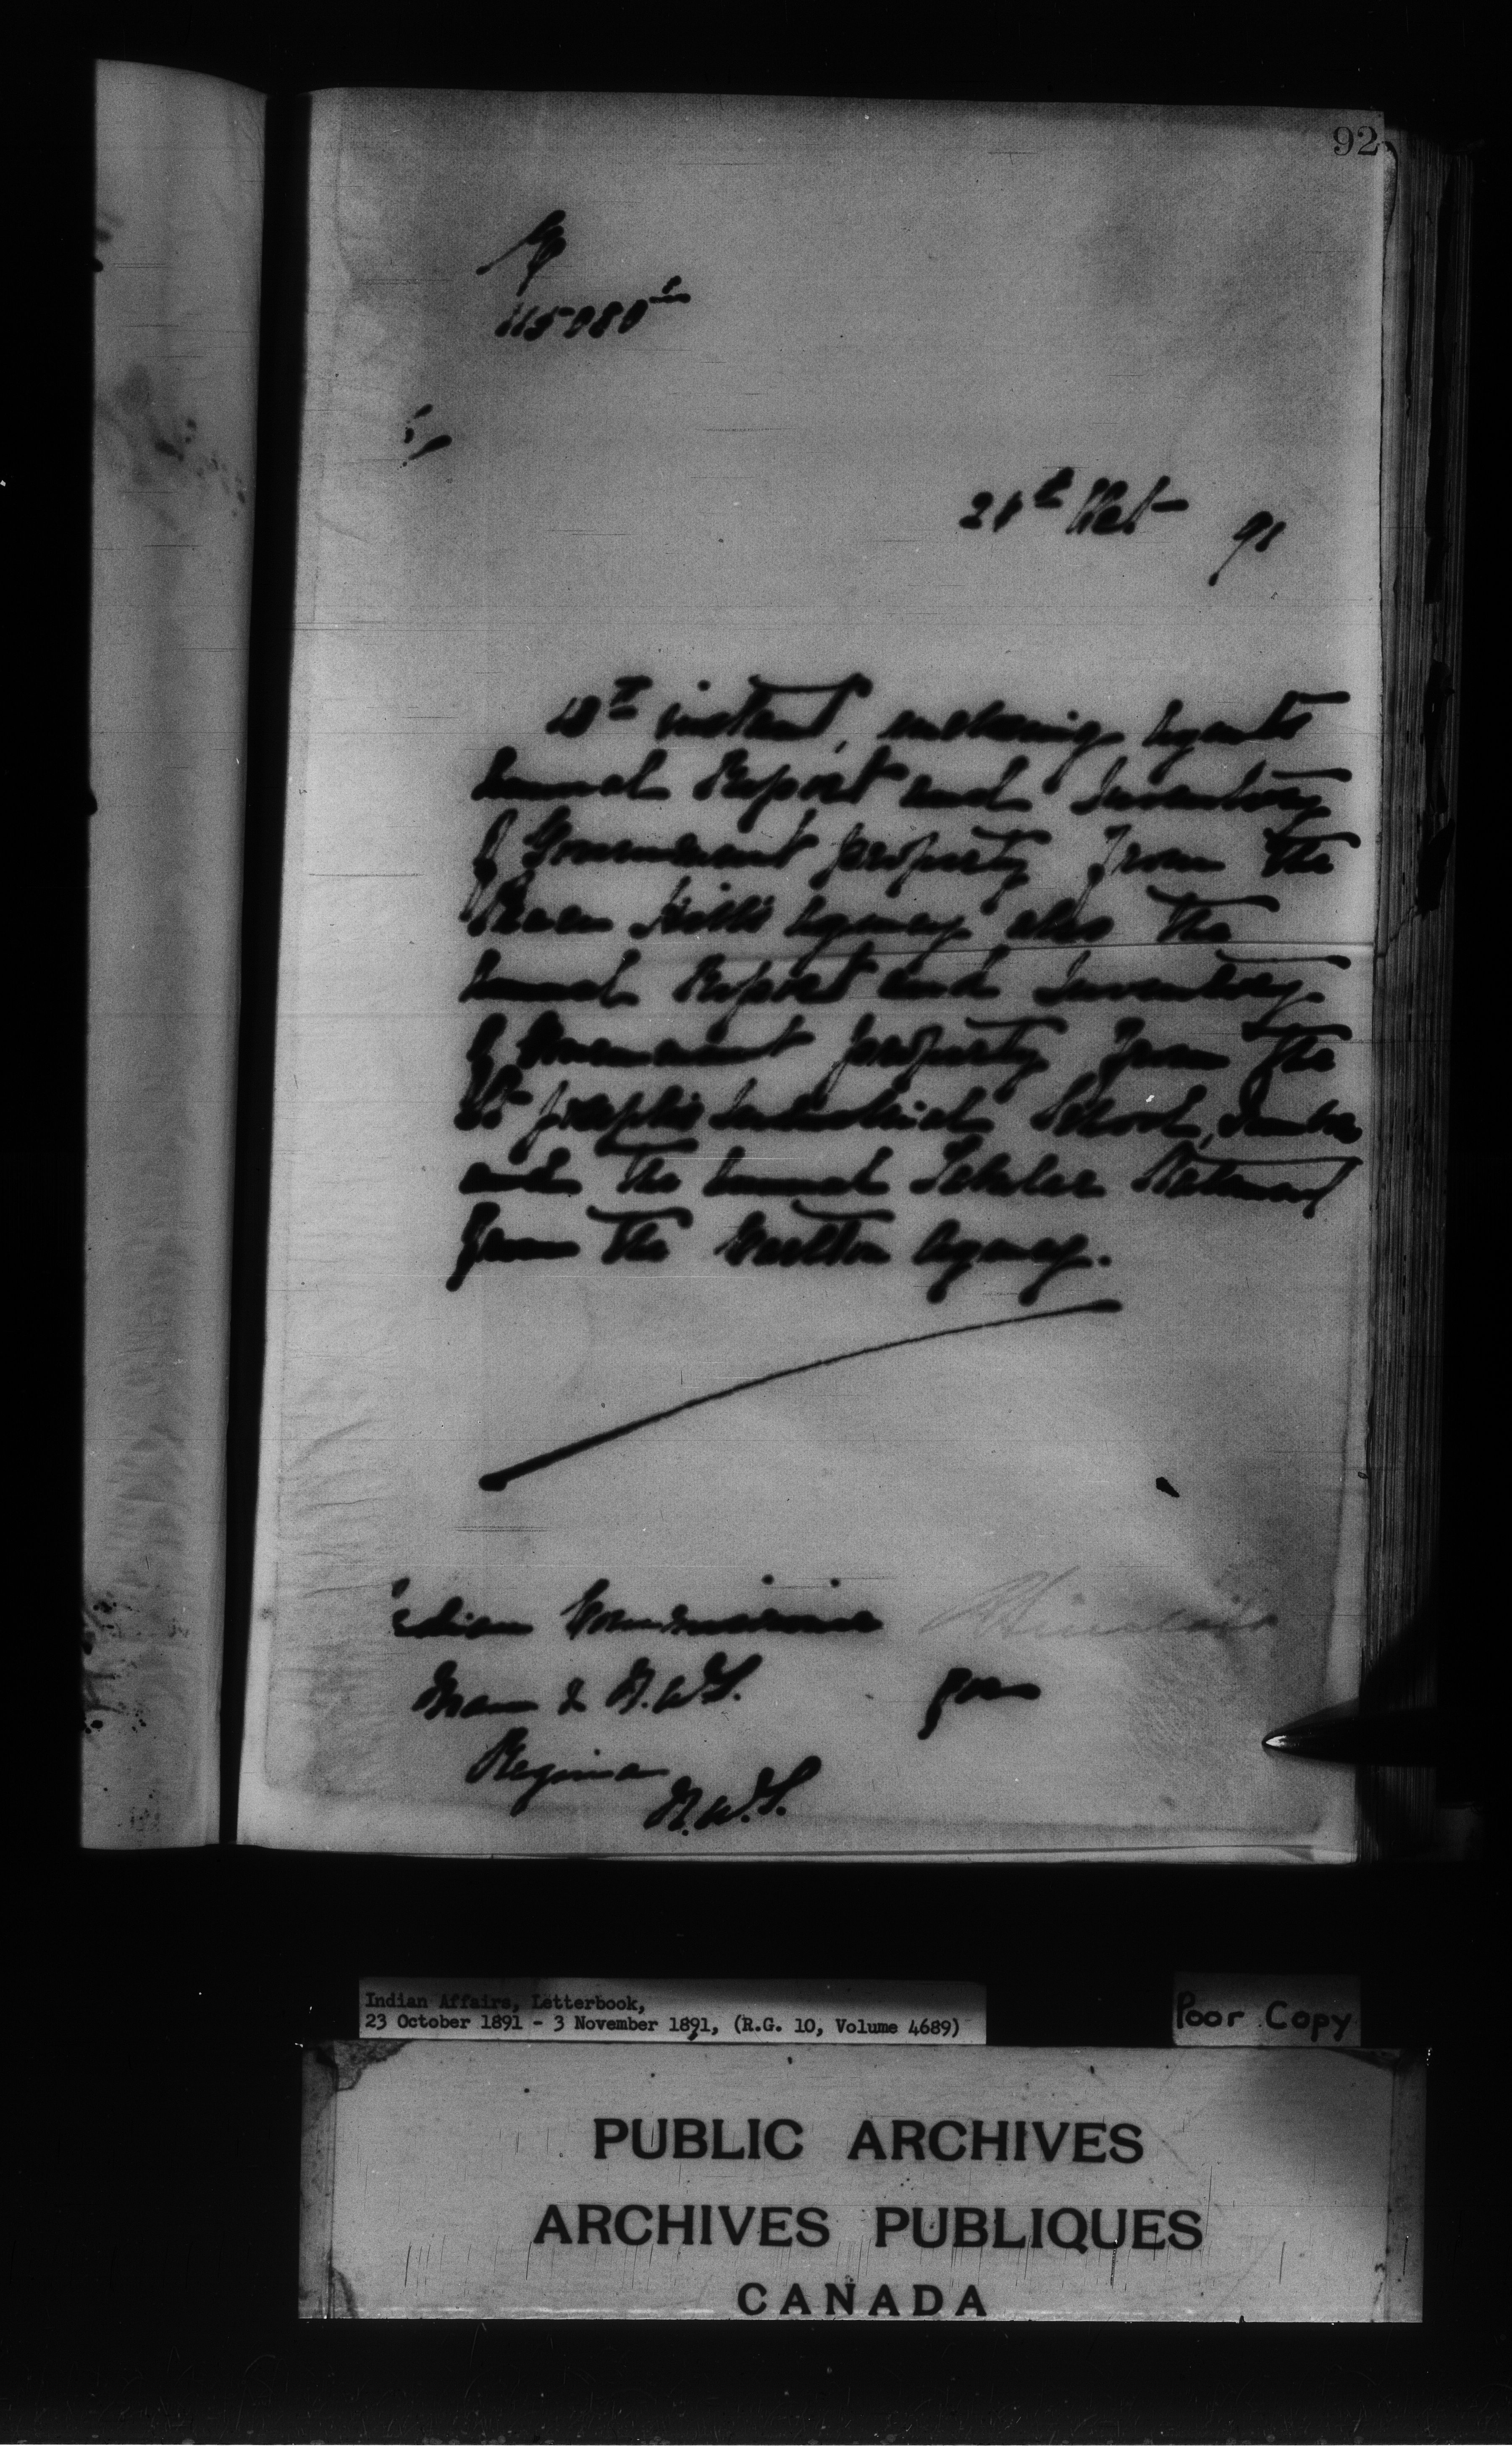 92
115080
Oct 91
instant, enclosing Agents
Annual Report and Inventory
of Government property from the
Hills Agency also the
Annual Report and Inventory
of Government property from the
St Joseph's Industrial School,
and the Annual Tabular Statement
from the Agency.
Indian Commissioner
Man & N.W.T.
Regina
N.W.T.
Indian Affairs, Letterbook,
23 October 1891 - 3 November 1891, (R.G. 10, Volume 4689)
Poor Copy
PUBLIC ARCHIVES
ARCHIVES PUBLIQUES
CANADA